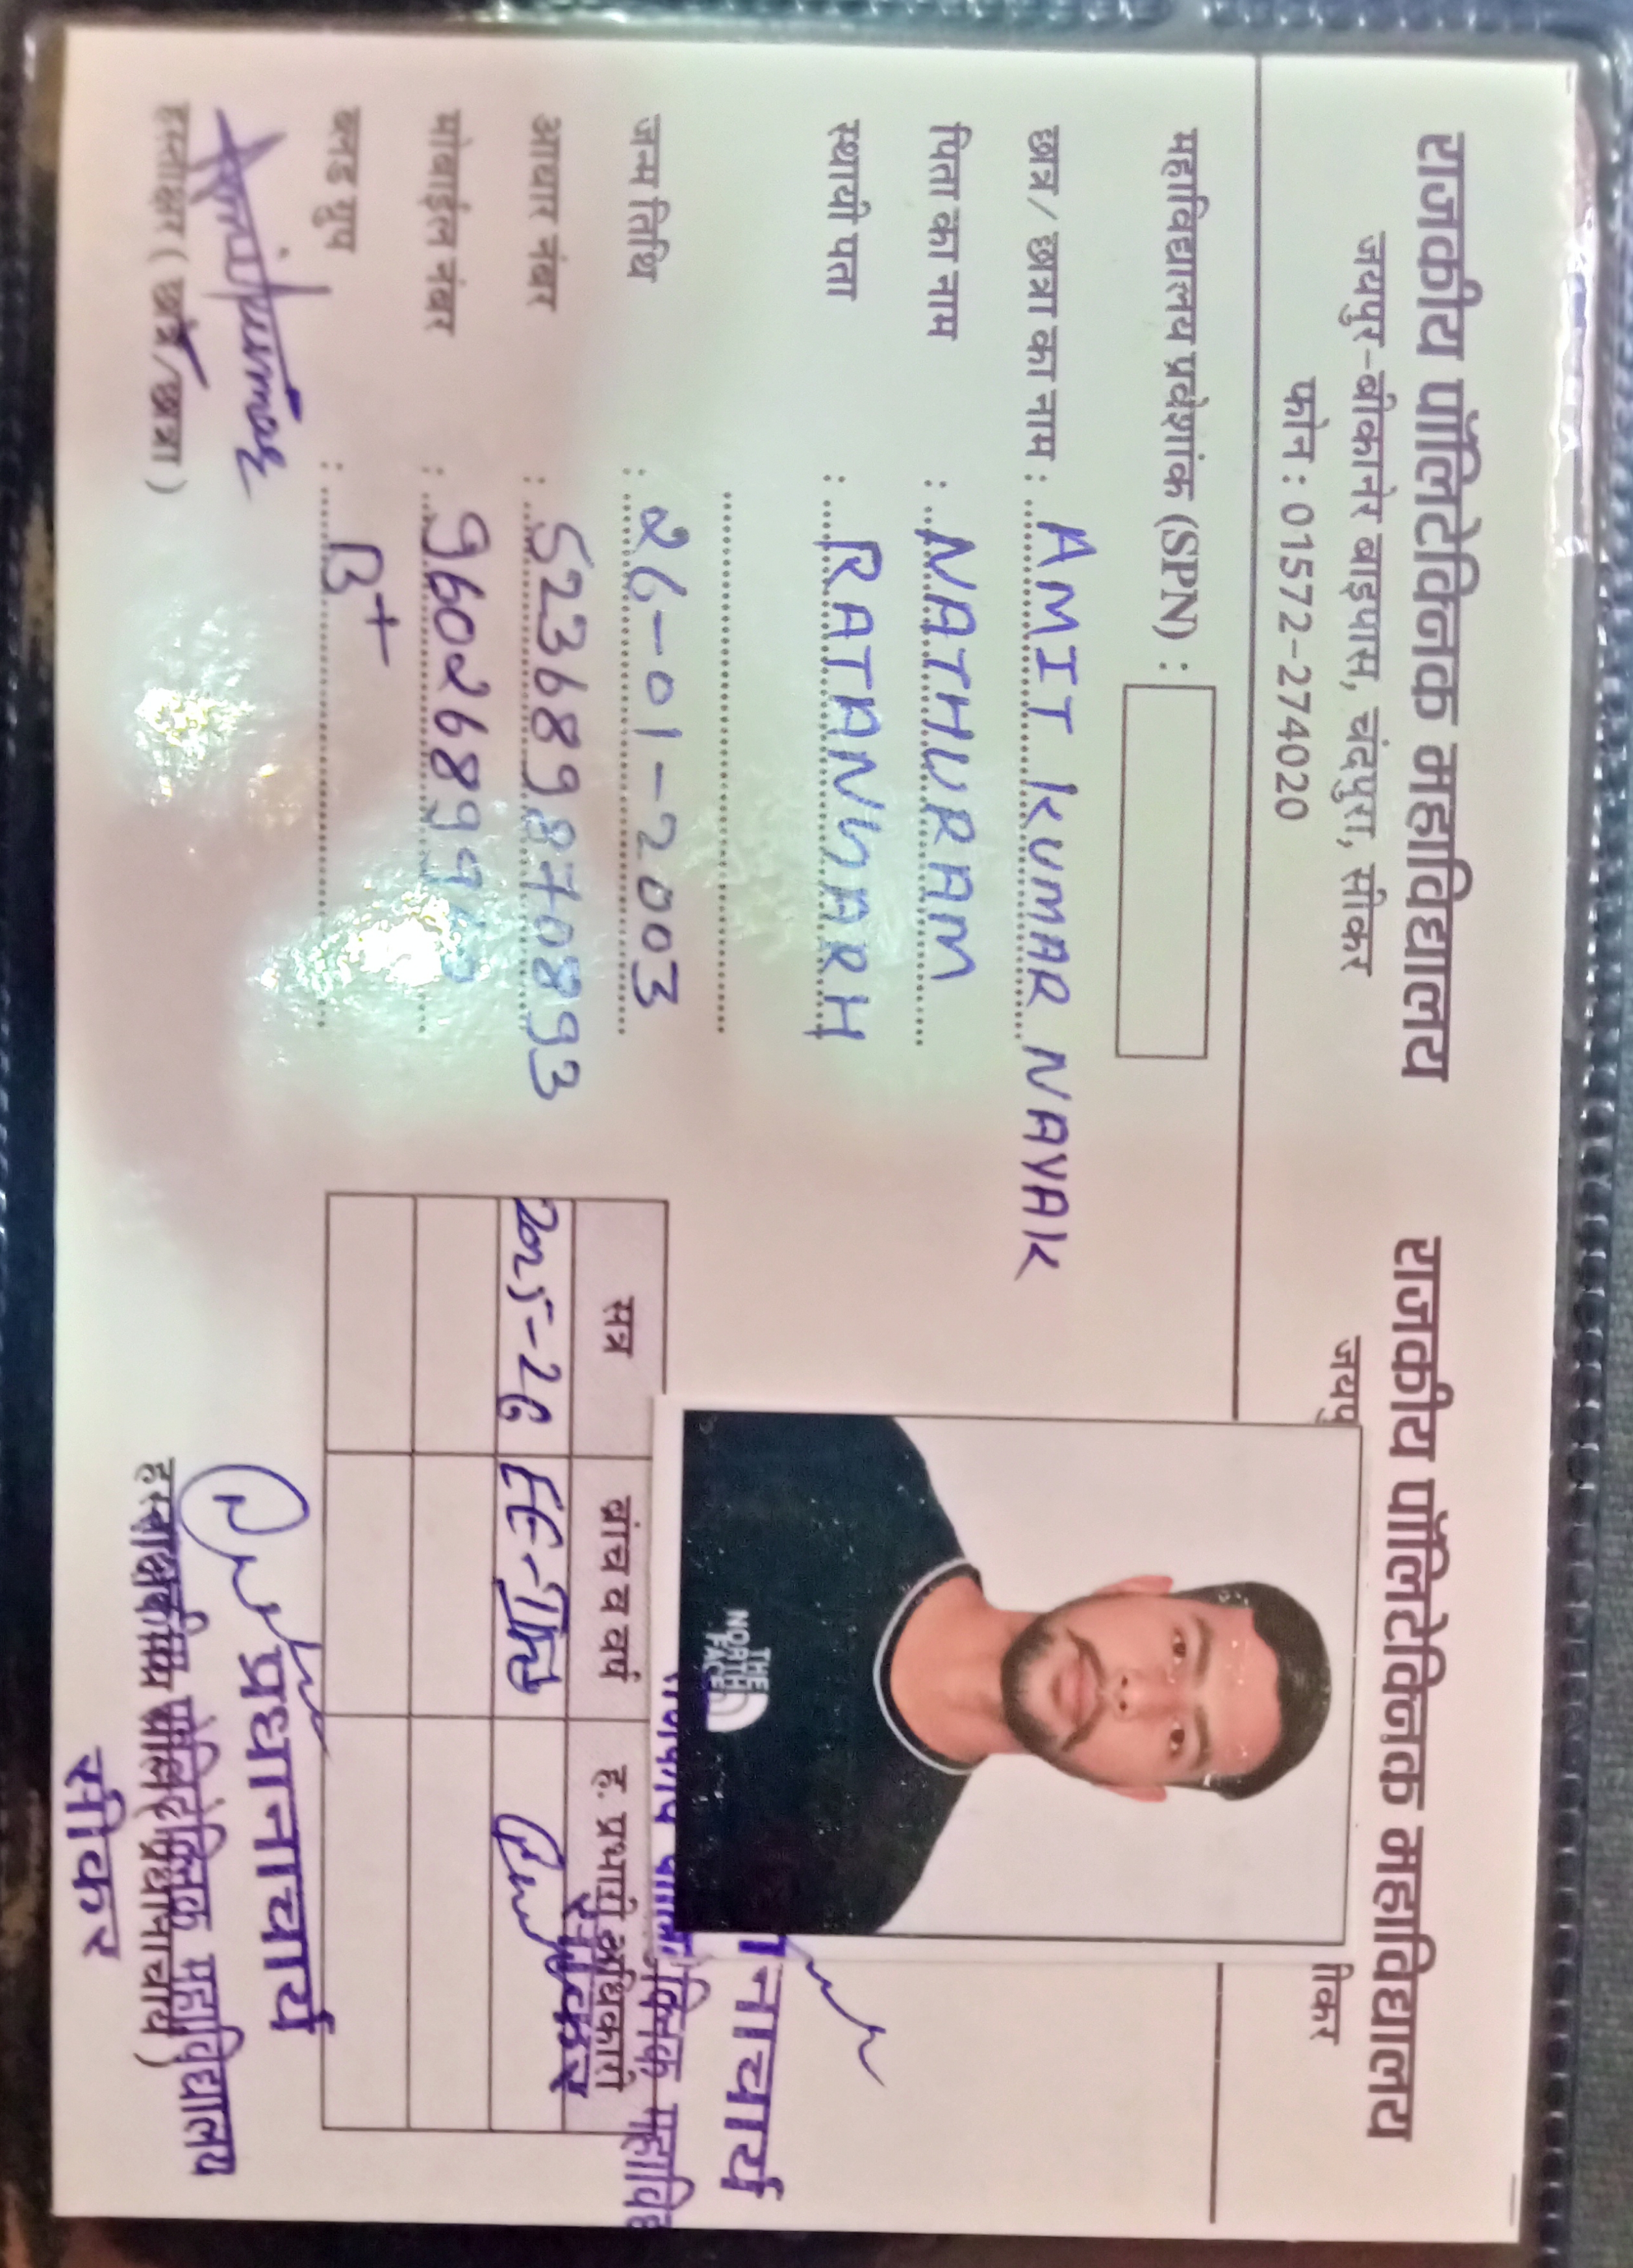 राजकीय पॉलिटेक्निक महाविद्यालय
जयपुर-बीकानेर बाइपास, चंदपुरा, सीकर
फोन : 01572-274020
महाविद्यालय प्रवेशांक (SPN) :
छात्र / छात्रा का नाम : AMIT KUMAR NAYAK
पिता का नाम : NATHURAM
स्थायी पता : RATANGARH
जन्म तिथि : 26-01-2003
आधार नंबर : 523689870893
मोबाईल नंबर : 96026899
ब्लड ग्रुप : B+
Amitkumar
हस्ताक्षर ( छात्र/छात्रा )
राजकीय पॉलिटेक्निक महाविद्यालय
जयपु
ीकर
THE
NORTH
FACE
नाचार्य
सत्र ब्रांच व वर्ष ह. प्रभारी अधिकारी
2025-26
सीकर
प्रधानाचार्य
राजकीय पॉलिटेक्निक महाविद्यालय
सीकर